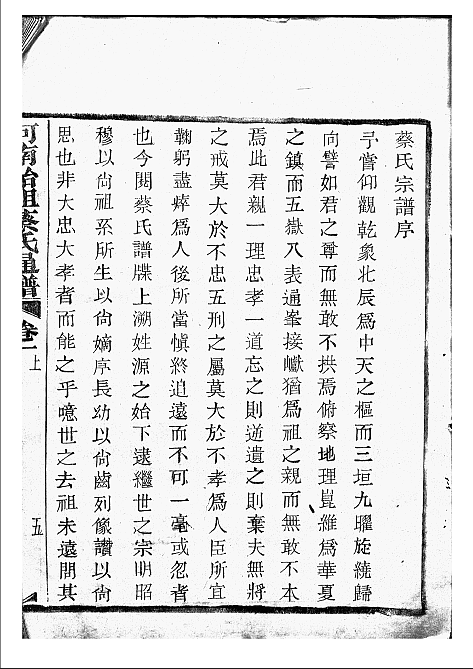 蔡氏宗譜序
予嘗仰觀乾象北辰爲中天之樞而三垣九曜旋繞歸
向譬如君之尊而無敢不拱焉俯察地理崑維爲華夏
之鎮而五嶽八表通峯接巘猶爲祖之親而無敢不本
焉此君親一理忠孝一道忘之則逆遺之則棄夫無將
之戒莫大於不忠五刑之屬莫大於不孝爲人臣所宜
鞠躬盡瘁爲人後所當愼終追遠而不可一毫或忽者
也今閱蔡氏譜牒上溯姓源之始下逮繼世之宗明昭
穆以尙祖系所生以尙嫡序長幼以尙齒列像讚以尙
思也非大忠大孝者而能之乎噫世之去祖未遠問其
河南始祖蔡氏通譜 卷一 上 五